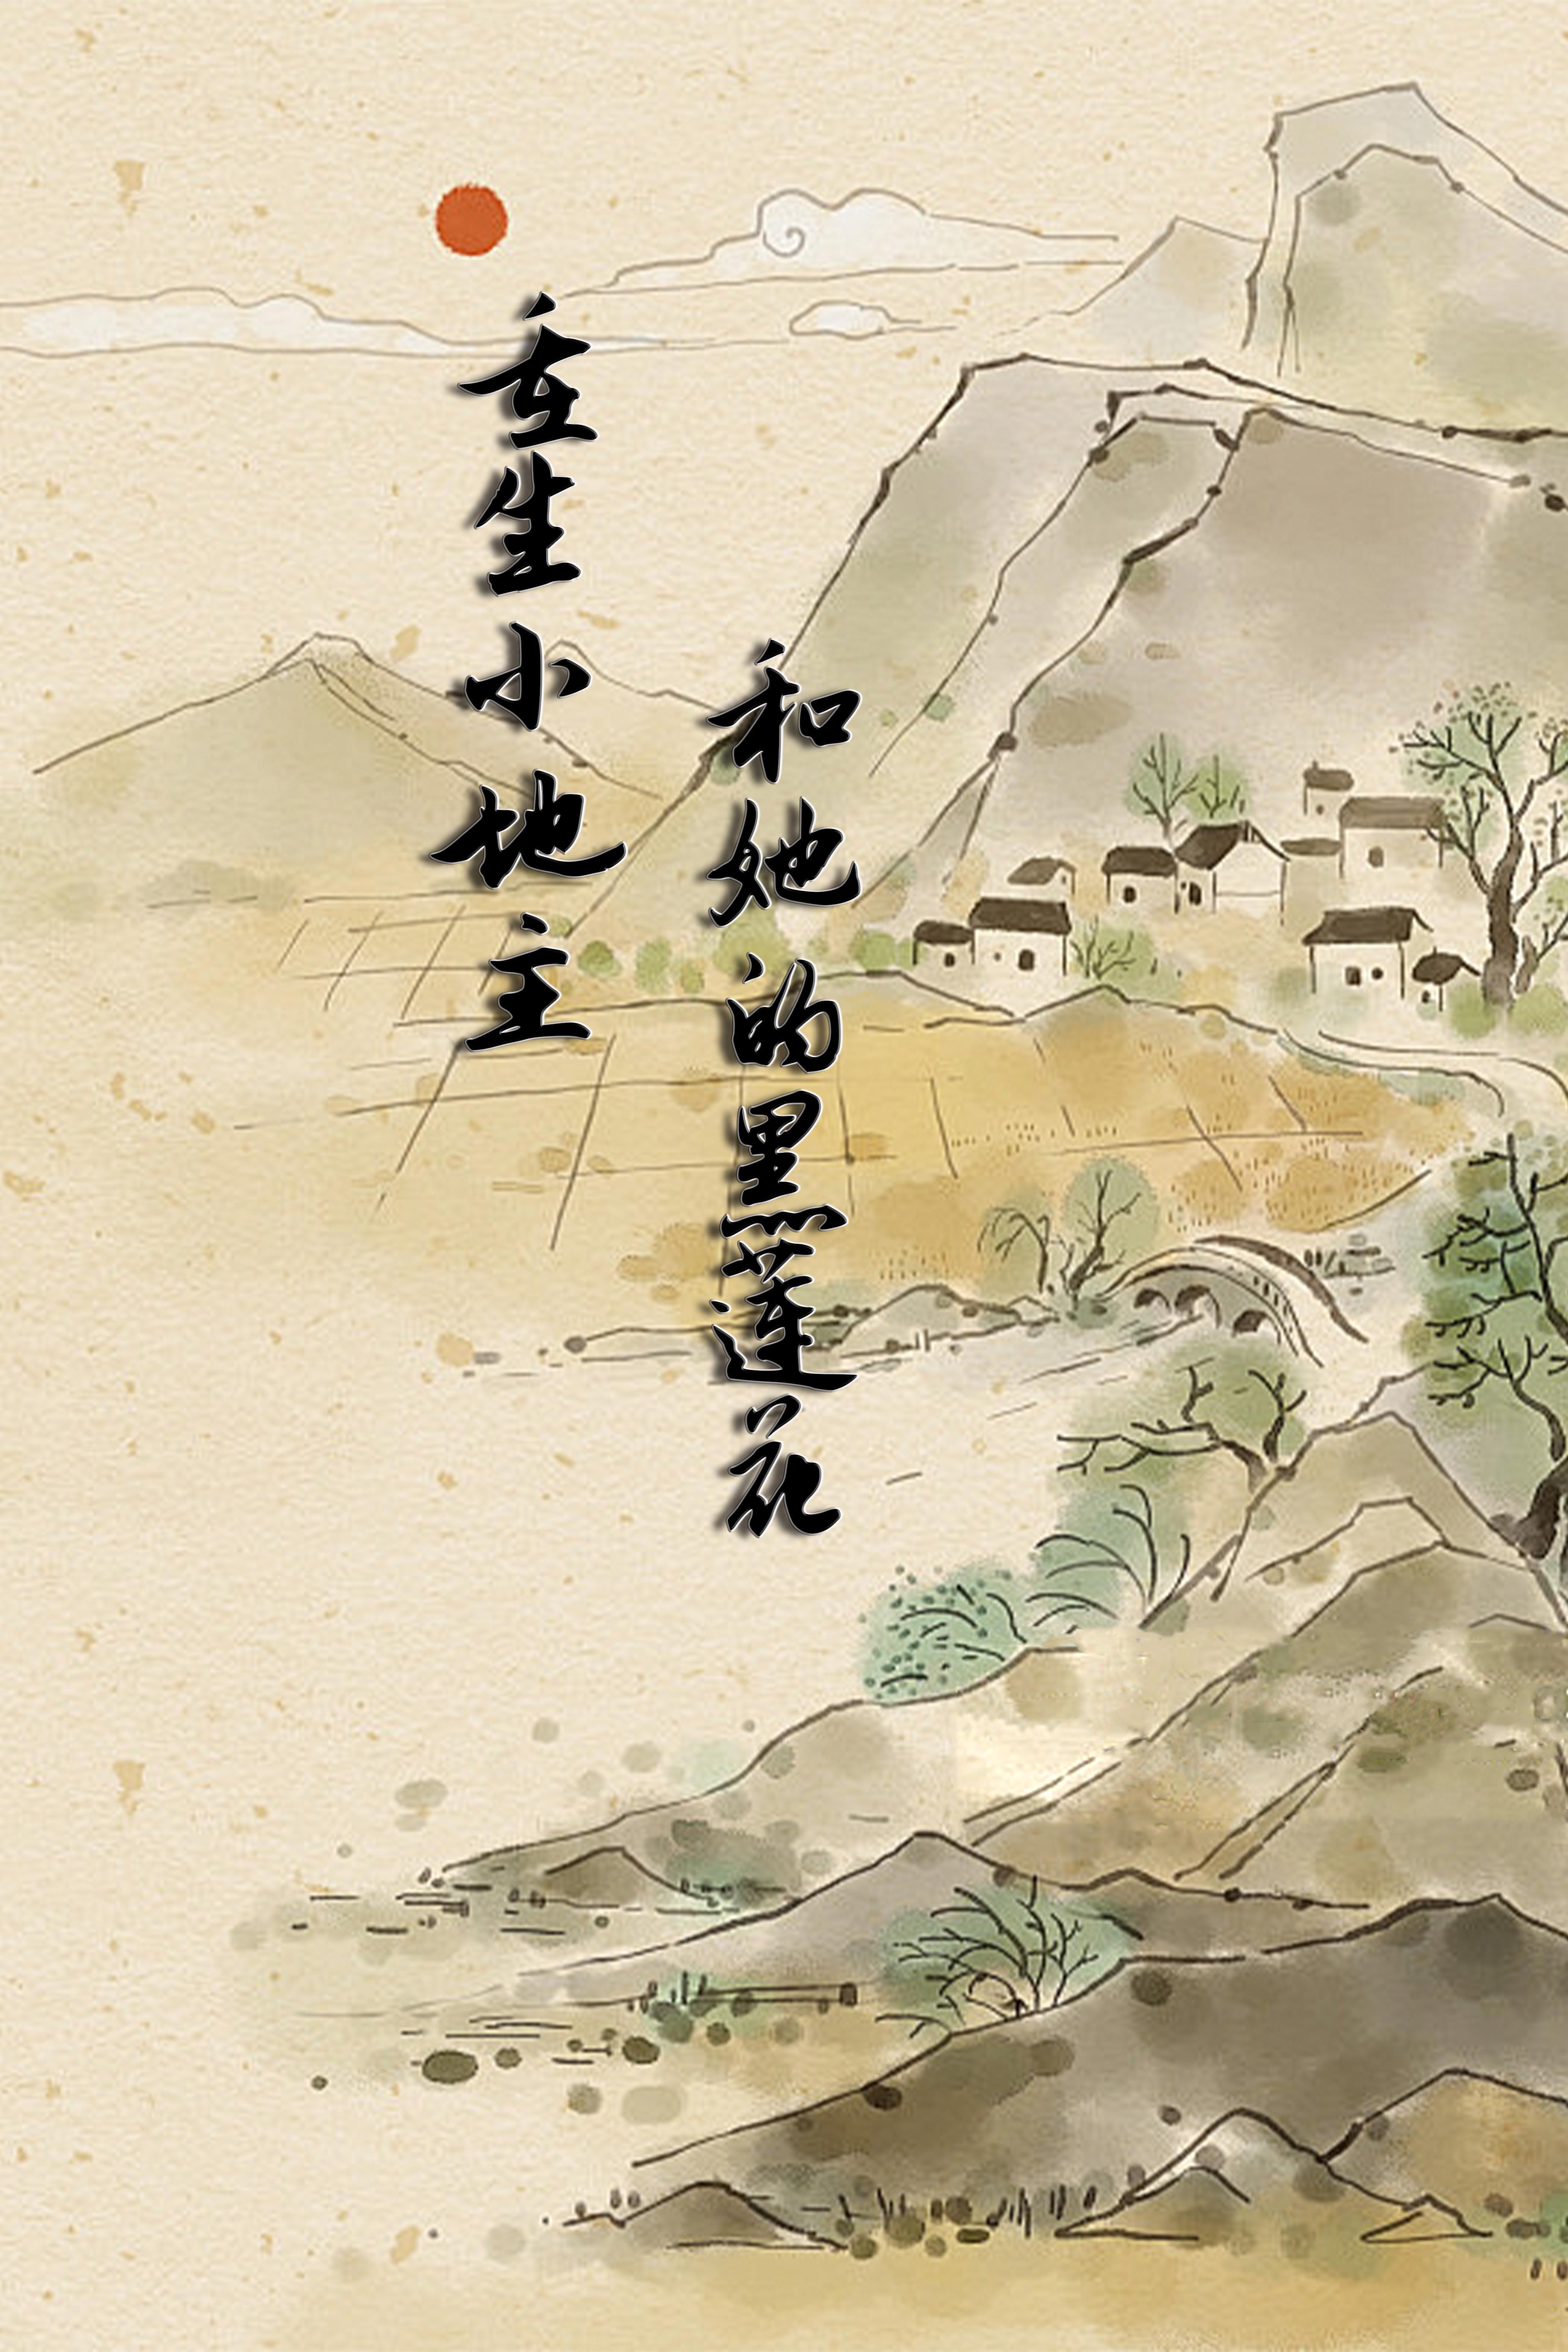 重生小地主
和她的黑莲花